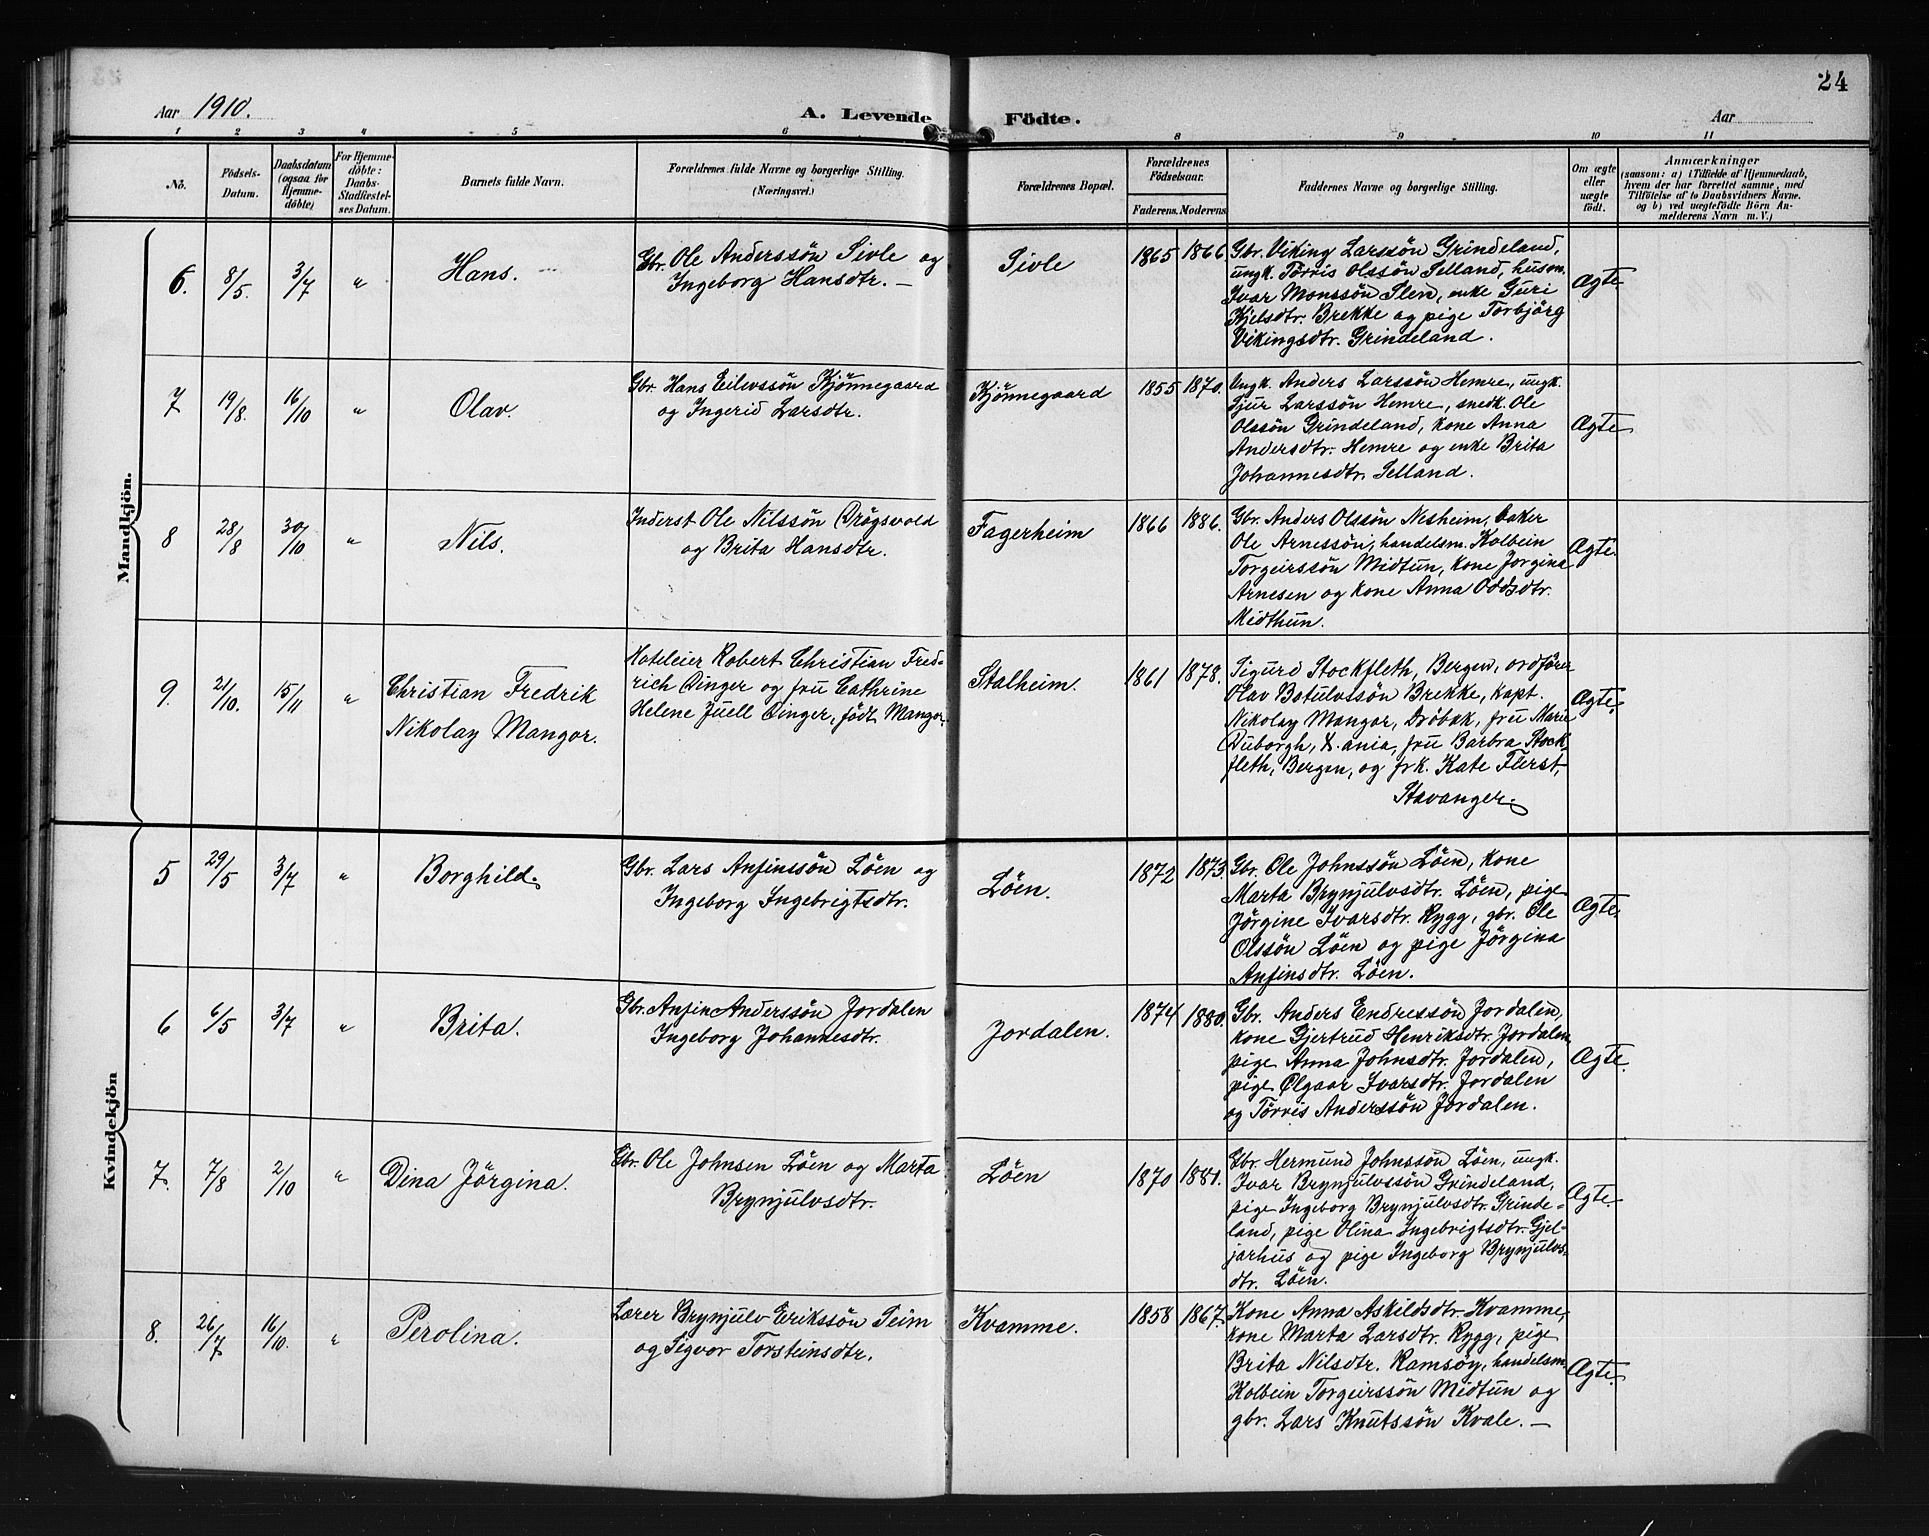 24
Aar 1910.
A. Levende Födte.
Aar
1 2 3 4 5 6 8 9 10 11
No.
Födsels-
Datum.
Daabsdatum
(ogsaa for
Hjemme-
döbte)
For Hjemme-
döbte:
Daabs-
Stadfæstel-
ses Datum.
Barnets fulde Navn.
Forældrenes fulde Navne og borgerlige Stilling.
(Næringsvei.)
Forældrenes Bopæl.
Forældrenes
Födselsaar.
Faderens. Moderens.
Faddernes Navne og borgerlige Stilling.
Om ægte
eller
uægte
født.
Anmærkninger
(saasom: a) i Tilfælde af Hjemmedaab,
hvem der har forrettet samme, med
Tilföielse af to Daabsvidners Navne.
og b) ved uægtefödte Börn An-
melderens Navn m. V.)
Mandkjön.
6. 8/5. 3/7 " Hans.
Gbr. Ole Anderssön Sivle og
Ingeborg Hansdtr. —
Sivle 1865 1866
Gbr. Viking Larssön Grindeland,
ungk. Torris Olssön Selland, husm.
Ivar Monssön Slen, enke Guri
Kjelsdtr. Brekke og pige Torbjörg
Vikingsdtr. Grindeland.
Ægte
7 19/8. 16/10 " Olav.
Gbr. Hans Eilevssön Kjönnegaard
og Ingerid Larsdtr.
Kjönnegaard 1855 1870.
Ungk. Anders Larssön Hemre, ungk.
Sjur Larssön Hemre, snedk. Ole
Olssön Grindeland, kone Anna
Andersdtr. Hemre og enke Brita
Johannesdtr. Selland.
Ægte
8 28/8 30/10 " Nils.
Inderst Ole Nilssön Drögsvold
og Brita Hansdtr.
Fagerheim 1866 1886.
Gbr. Anders Olssön Nesheim, baker
Ole Arnessön, handelsm. Kolbein
Torgeirssön Midtun, kone Jorgina
Arnesen og kone Anna Oddsdtr.
Midthun.
Ægte.
9. 21/10. 15/11 " Christian Fredrik
Nikolay Mangor.
Hoteleier Robert Christian Fred-
rich Dinger og fru Cathrine
Helene Juell Dinger, födt Mangor.
Stalheim. 1861 1878.
Sigurd Stockfleth, Bergen, ordfører
Olav Batulvssön Brekke, kapt.
Nikolay Mangor, Dröbak, fru Marie
Duborgh, X.ania, fru Barbra Stock-
fleth, Bergen, og frk. Kate Fürst,
Stavanger.
Ægte.
Kvindekjön
5 29/5 3/7 " Borghild.
Gbr. Lars Anfinssön Löen og
Ingeborg Ingebrigtsdtr.
Löen. 1872 1873.
Gbr. Ole Johnssön Löen, kone
Marta Brynjulvsdtr. Löen, pige
Jörgine Ivarsdtr. Rygg, gbr. Ole
Olssön Löen og pige Jörgina
Anfinsdtr. Löen.
Ægte.
6 6/5 3/7 " Brita.
Gbr. Anfin Anderssön Jordalen
Ingeborg Johannesdtr.
Jordalen. 1874 1880.
Gbr. Anders Endressön Jordalen,
kone Gjertrud Henriksdtr. Jordalen,
pige Anna Johnsdtr. Jordalen,
pige Olgaar Ivarsdtr. Jordalen
og Törris Anderssön Jordalen.
Ægte.
7. 7/8 2/10 " Dina Jörgina.
Gbr. Ole Johnsen Löen og Marta
Brynjulvsdtr.
Löen 1870 1881.
Gbr. Hermund Johnssön Löen, ungk.
Ivar Brynjulvssön Grindeland,
pige Ingeborg Brynjulvsdtr. Grinde-
land, pige Olina Ingebrigtsdtr. Gjel-
jarhus og pige Ingeborg Brynjulvs-
dtr. Löen.
Ægte.
8. 26/7 16/10. " Perolina.
Lærer Brynjulv Erikssön Seim
og Sigvor Torsteinsdtr.
Kvamme. 1858 1867.
Kone Anna Askildsdtr. Kvamme,
kone Marta Larsdtr. Rygg, pige
Brita Nilsdtr. Ramsöy, handelsm.
Kolbein Torgeirssön Midtun og
gbr. Lars Knutssön Kvale. —
Ægte.